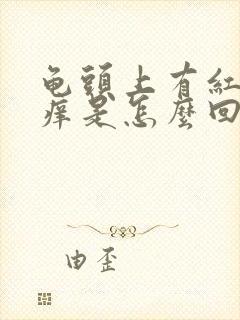 龟頭上有紅
痒是怎麼回
由歪